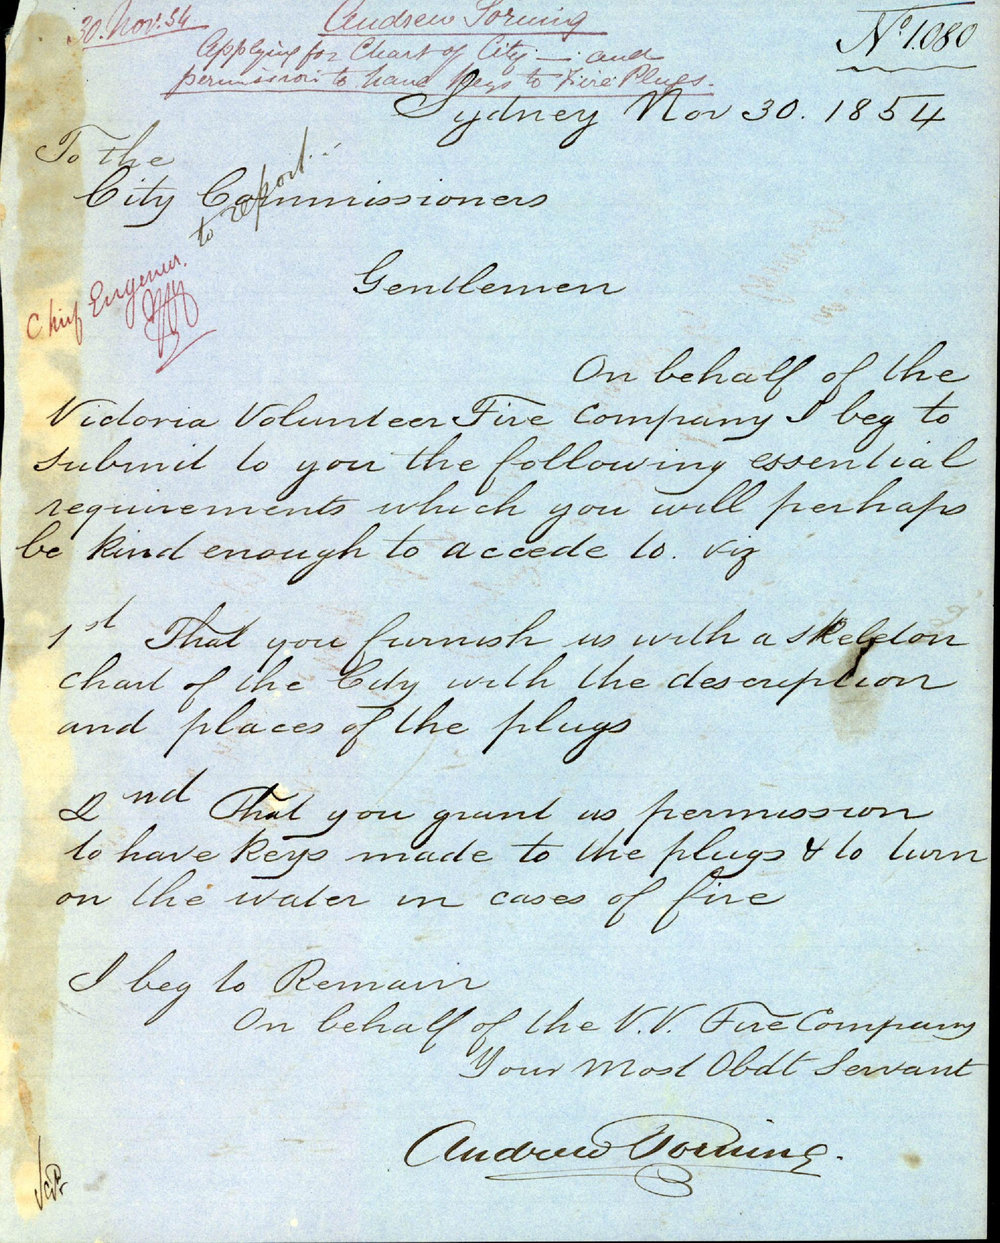 30. Nov. 54
Andrew Torning
Applying for Chart of City — and
permission to have Keys to Fire Plugs.
No. 1.080
Sydney Nov 30. 1854
To the
City Commissioners
to report
Chief Engineer.
Gentlemen
On behalf of the
Victoria Volunteer Fire Company I beg to
submit to you the following essential
requirements which you will perhaps
be kind enough to accede to. viz
1st That you furnish us with a skeleton
chart of the City with the description
and places of the plugs
2nd That you grant us permission
to have keys made to the plugs & to turn
on the water in cases of fire
I beg to Remain
On behalf of the V.V. Fire Company
Your Most Obdt Servant
Andrew Torning.